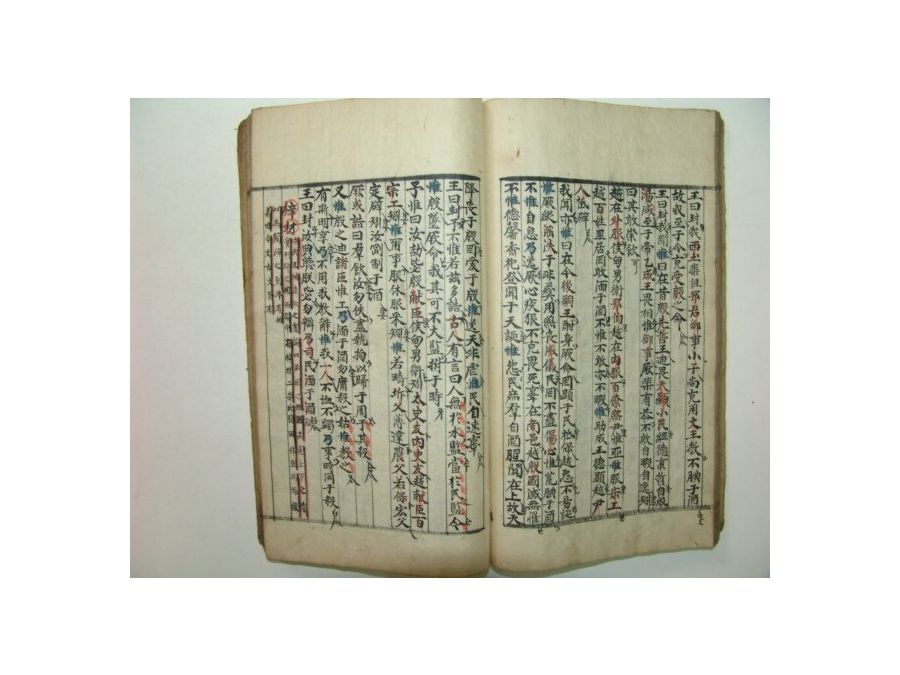 王曰封我西土棐徂邦君御事小子尚克用文王教不腆于酒
故我至于今克受殷之命
王曰封我聞惟曰在昔殷先哲王迪畏天顯小民經德秉哲自
湯咸至于帝乙成王畏相惟御事厥棐有恭不敢自暇自逸矧
曰其敢崇飲
越在外服侯甸男衛邦伯越在內服百僚庶尹惟亞惟服宗工
越百姓里居罔敢湎于酒不惟不敢亦不暇惟助成王德顯越尹
人祗辟
我聞亦惟曰在今後嗣王酣身厥命罔顯于民祗保越怨不易誕
惟厥縱淫泆于非彝用燕喪威儀民罔不盡傷心惟荒腆于酒
不惟自息乃逸厥心疾狠不克畏死辜在商邑越殷國滅無罹
不惟德馨香祀登聞于天誕惟民怨庶羣自酒腥聞在上故天
降喪于殷罔愛于殷惟逸天非虐惟民自速辜
王曰封予不惟若玆多誥古人有言曰人無於水監當於民監今
惟殷墜厥命我其可不大監撫于時
予惟曰汝劼毖殷獻臣侯甸男衛矧太史友內史友越獻臣百
宗工矧惟爾事服休服采矧惟若疇圻父薄違農父若保宏父
定辟矧汝剛制于酒
厥或誥曰羣飲汝勿佚盡執拘以歸于周予其殺
又惟殷之迪諸臣惟工乃湎于酒勿庸殺之姑惟教之
有斯明享乃不用我教辭惟我一人不恤不蠲乃事時同于殺
王曰封汝典聽朕毖勿辯乃司民湎于酒
梓材